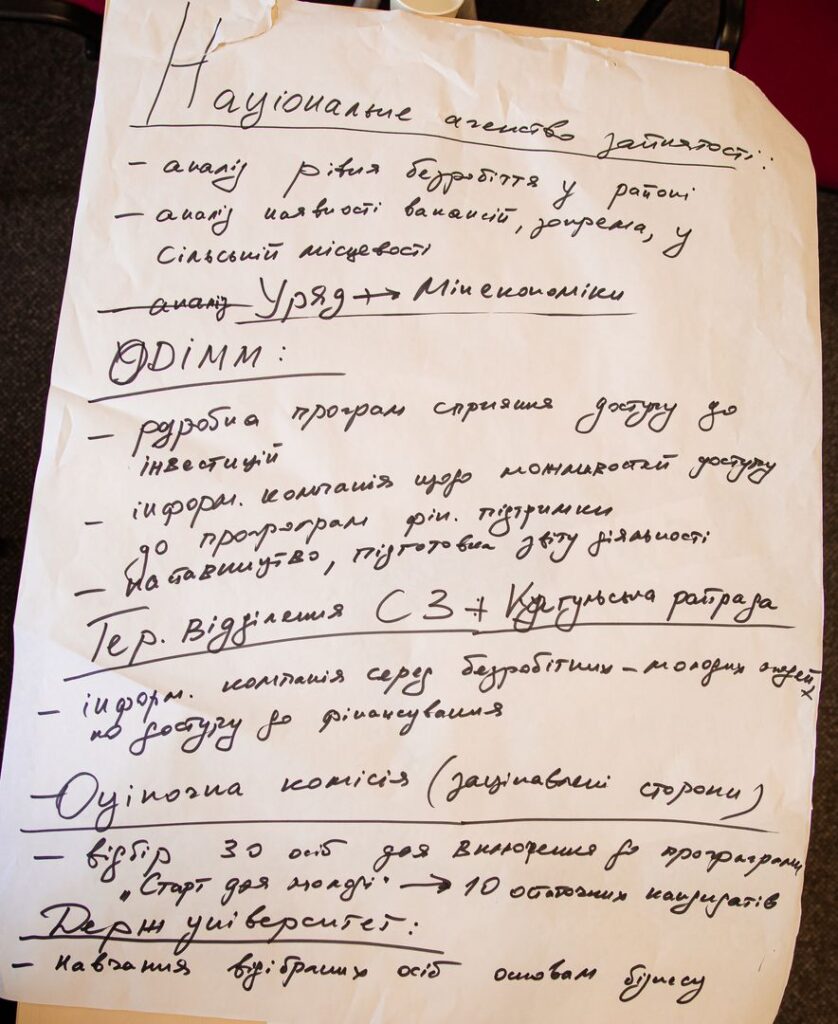 Національне агенство зайнятості:
– аналіз рівня безробіття у районі
– аналіз наявності вакансій, зокрема, у
сільській місцевості
– аналіз Уряд → Мінекономіки
ОДІММ:
– розробка програм сприяння доступу до
інвестицій
– інформ. компанія щодо можливостей доступу
до програм фін. підтримки
– наставництво, підготовка звіту діяльності
Тер. відділення СЗ + Кагульська райрада
– інформ. компанія серед безробітних – молодих людей
по доступу до фінансування
– Оціночна комісія (зацікавлені сторони)
– відбір 30 осіб для включення до програми
„Старт для молоді" → 10 остаточних кандидатів
Держ університет:
– навчання відібраних осіб основам бізнесу